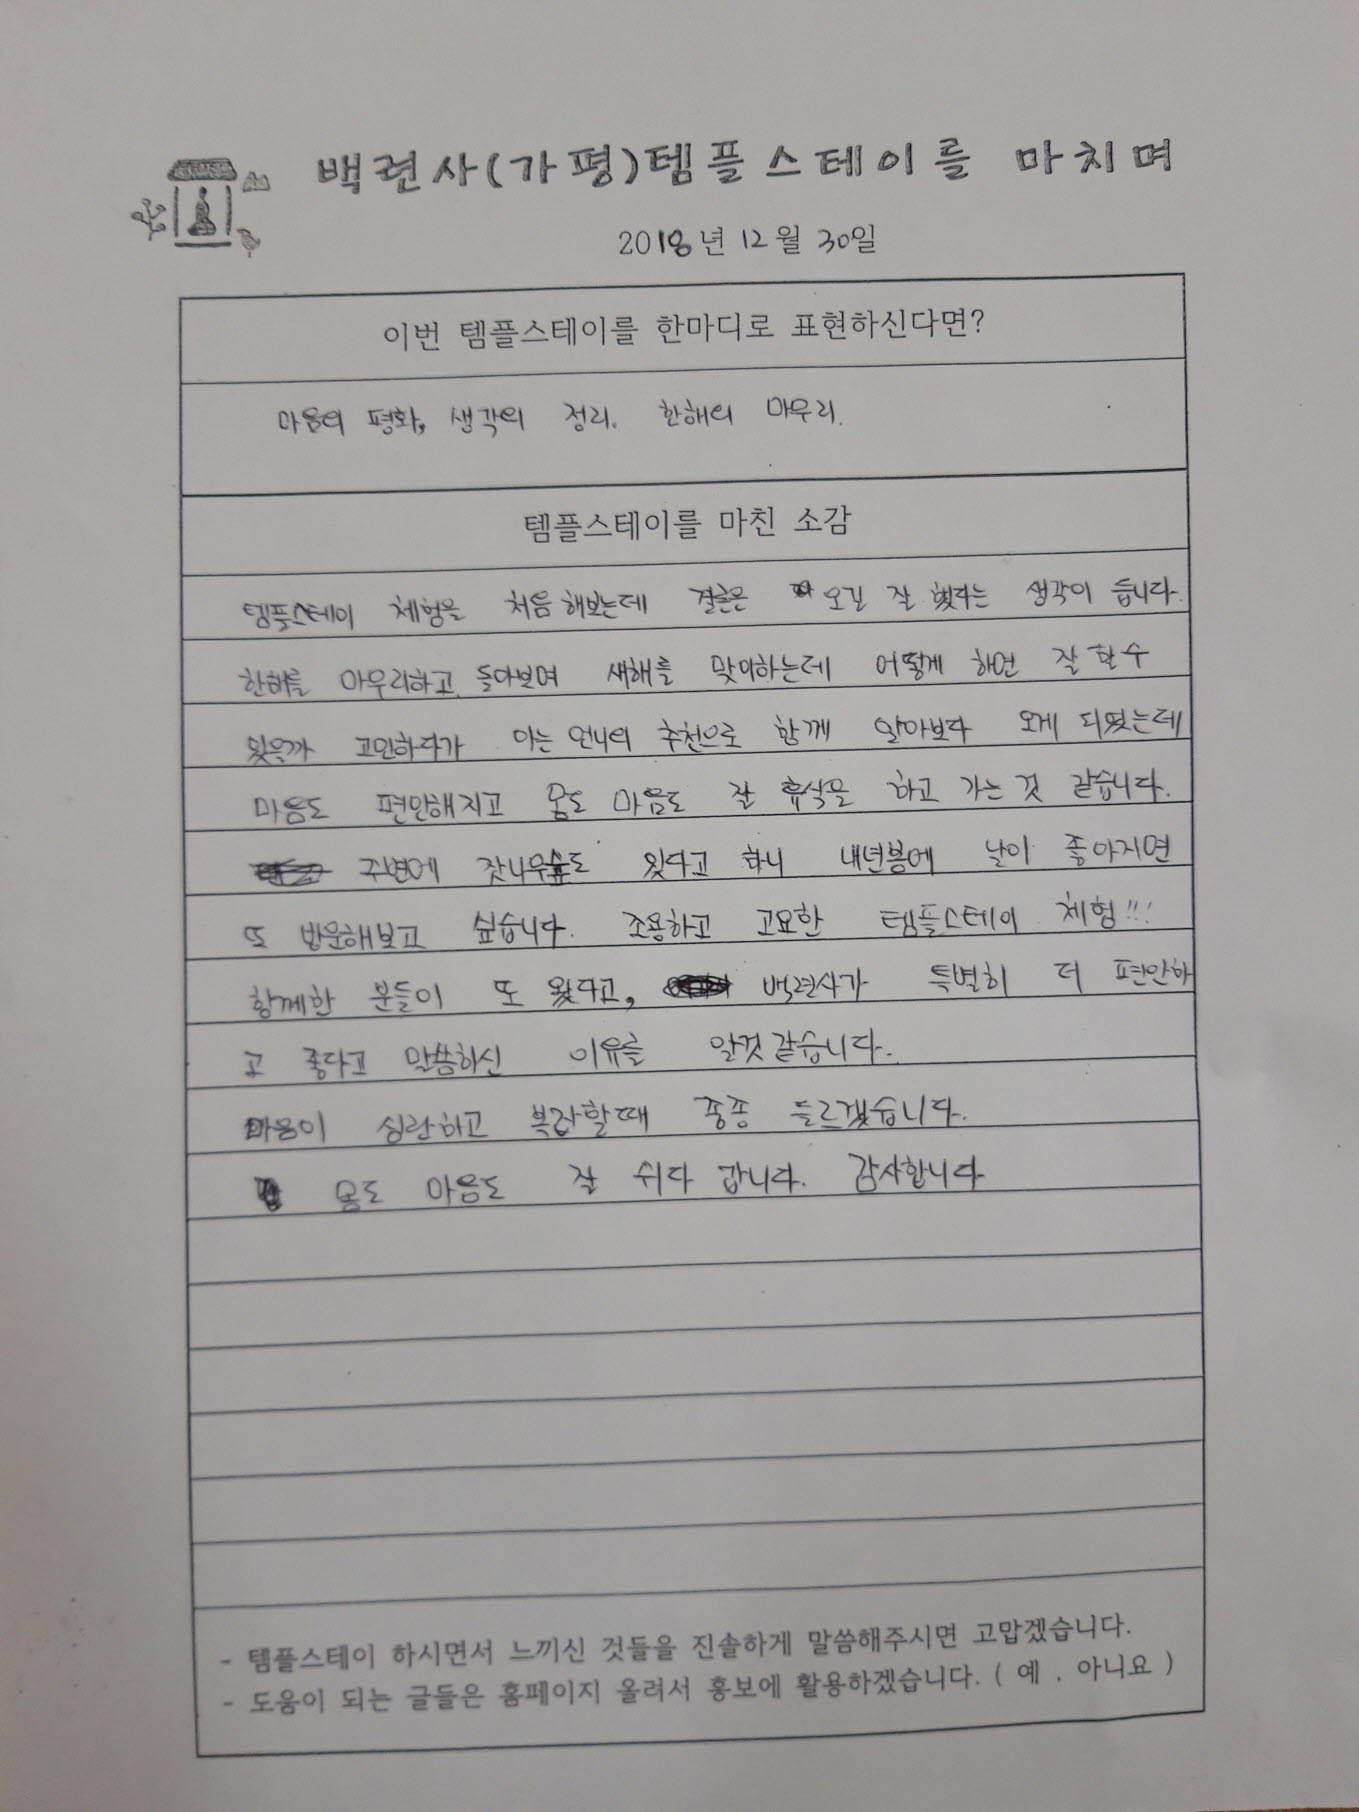 백련사(가평)템플스테이를 마치며
2018년 12월 30일
이번 템플스테이를 한마디로 표현하신다면?
마음의 평화, 생각의 정리. 한해의 마무리.
템플스테이를 마친 소감
템플스테이 체험을 처음 해보는데 결론은 오길 잘 했다는 생각이 듭니다.
한해를 마무리하고 돌아보며 새해를 맞이하는데 어떻게 하면 잘 할수
있을까 고민하다가 아는 언니의 추천으로 함께 알아보다 오게 되었는데
마음도 편안해지고 몸도 마음도 잘 휴식을 하고 가는 것 같습니다.
주변에 잣나무숲도 있다고 하니 내년봄에 날이 좋아지면
또 방문해보고 싶습니다. 조용하고 고요한 템플스테이 체험!!!
함께한 분들이 또 왔다고, 백련사가 특별히 더 편안하
고 좋다고 말씀하신 이유를 알것 같습니다.
마음이 심란하고 복잡할때 종종 들르겠습니다.
몸도 마음도 잘 쉬다 갑니다. 감사합니다
- 템플스테이 하시면서 느끼신 것들을 진솔하게 말씀해주시면 고맙겠습니다.
- 도움이 되는 글들은 홈페이지 올려서 홍보에 활용하겠습니다. ( 예 . 아니요 )